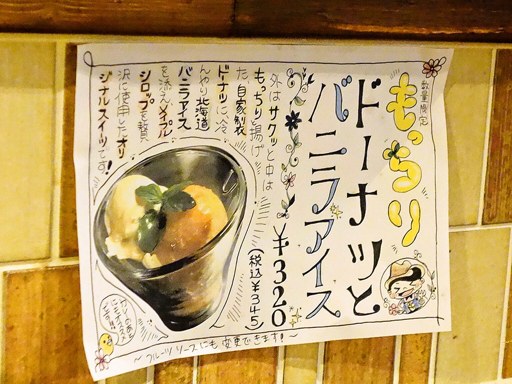 数量限定
もっちり
ドーナツと
バニラアイス
¥320
(税込¥345)
外はサクッと中は
もっちりと揚げ
た、自家製
ドーナツに、冷
んやり北海道
バニラアイス
を添え、メイプル
シロップを贅
沢に使用したオリ
ジナルスイーツです!
〜フルーツソースにも変更できます!〜